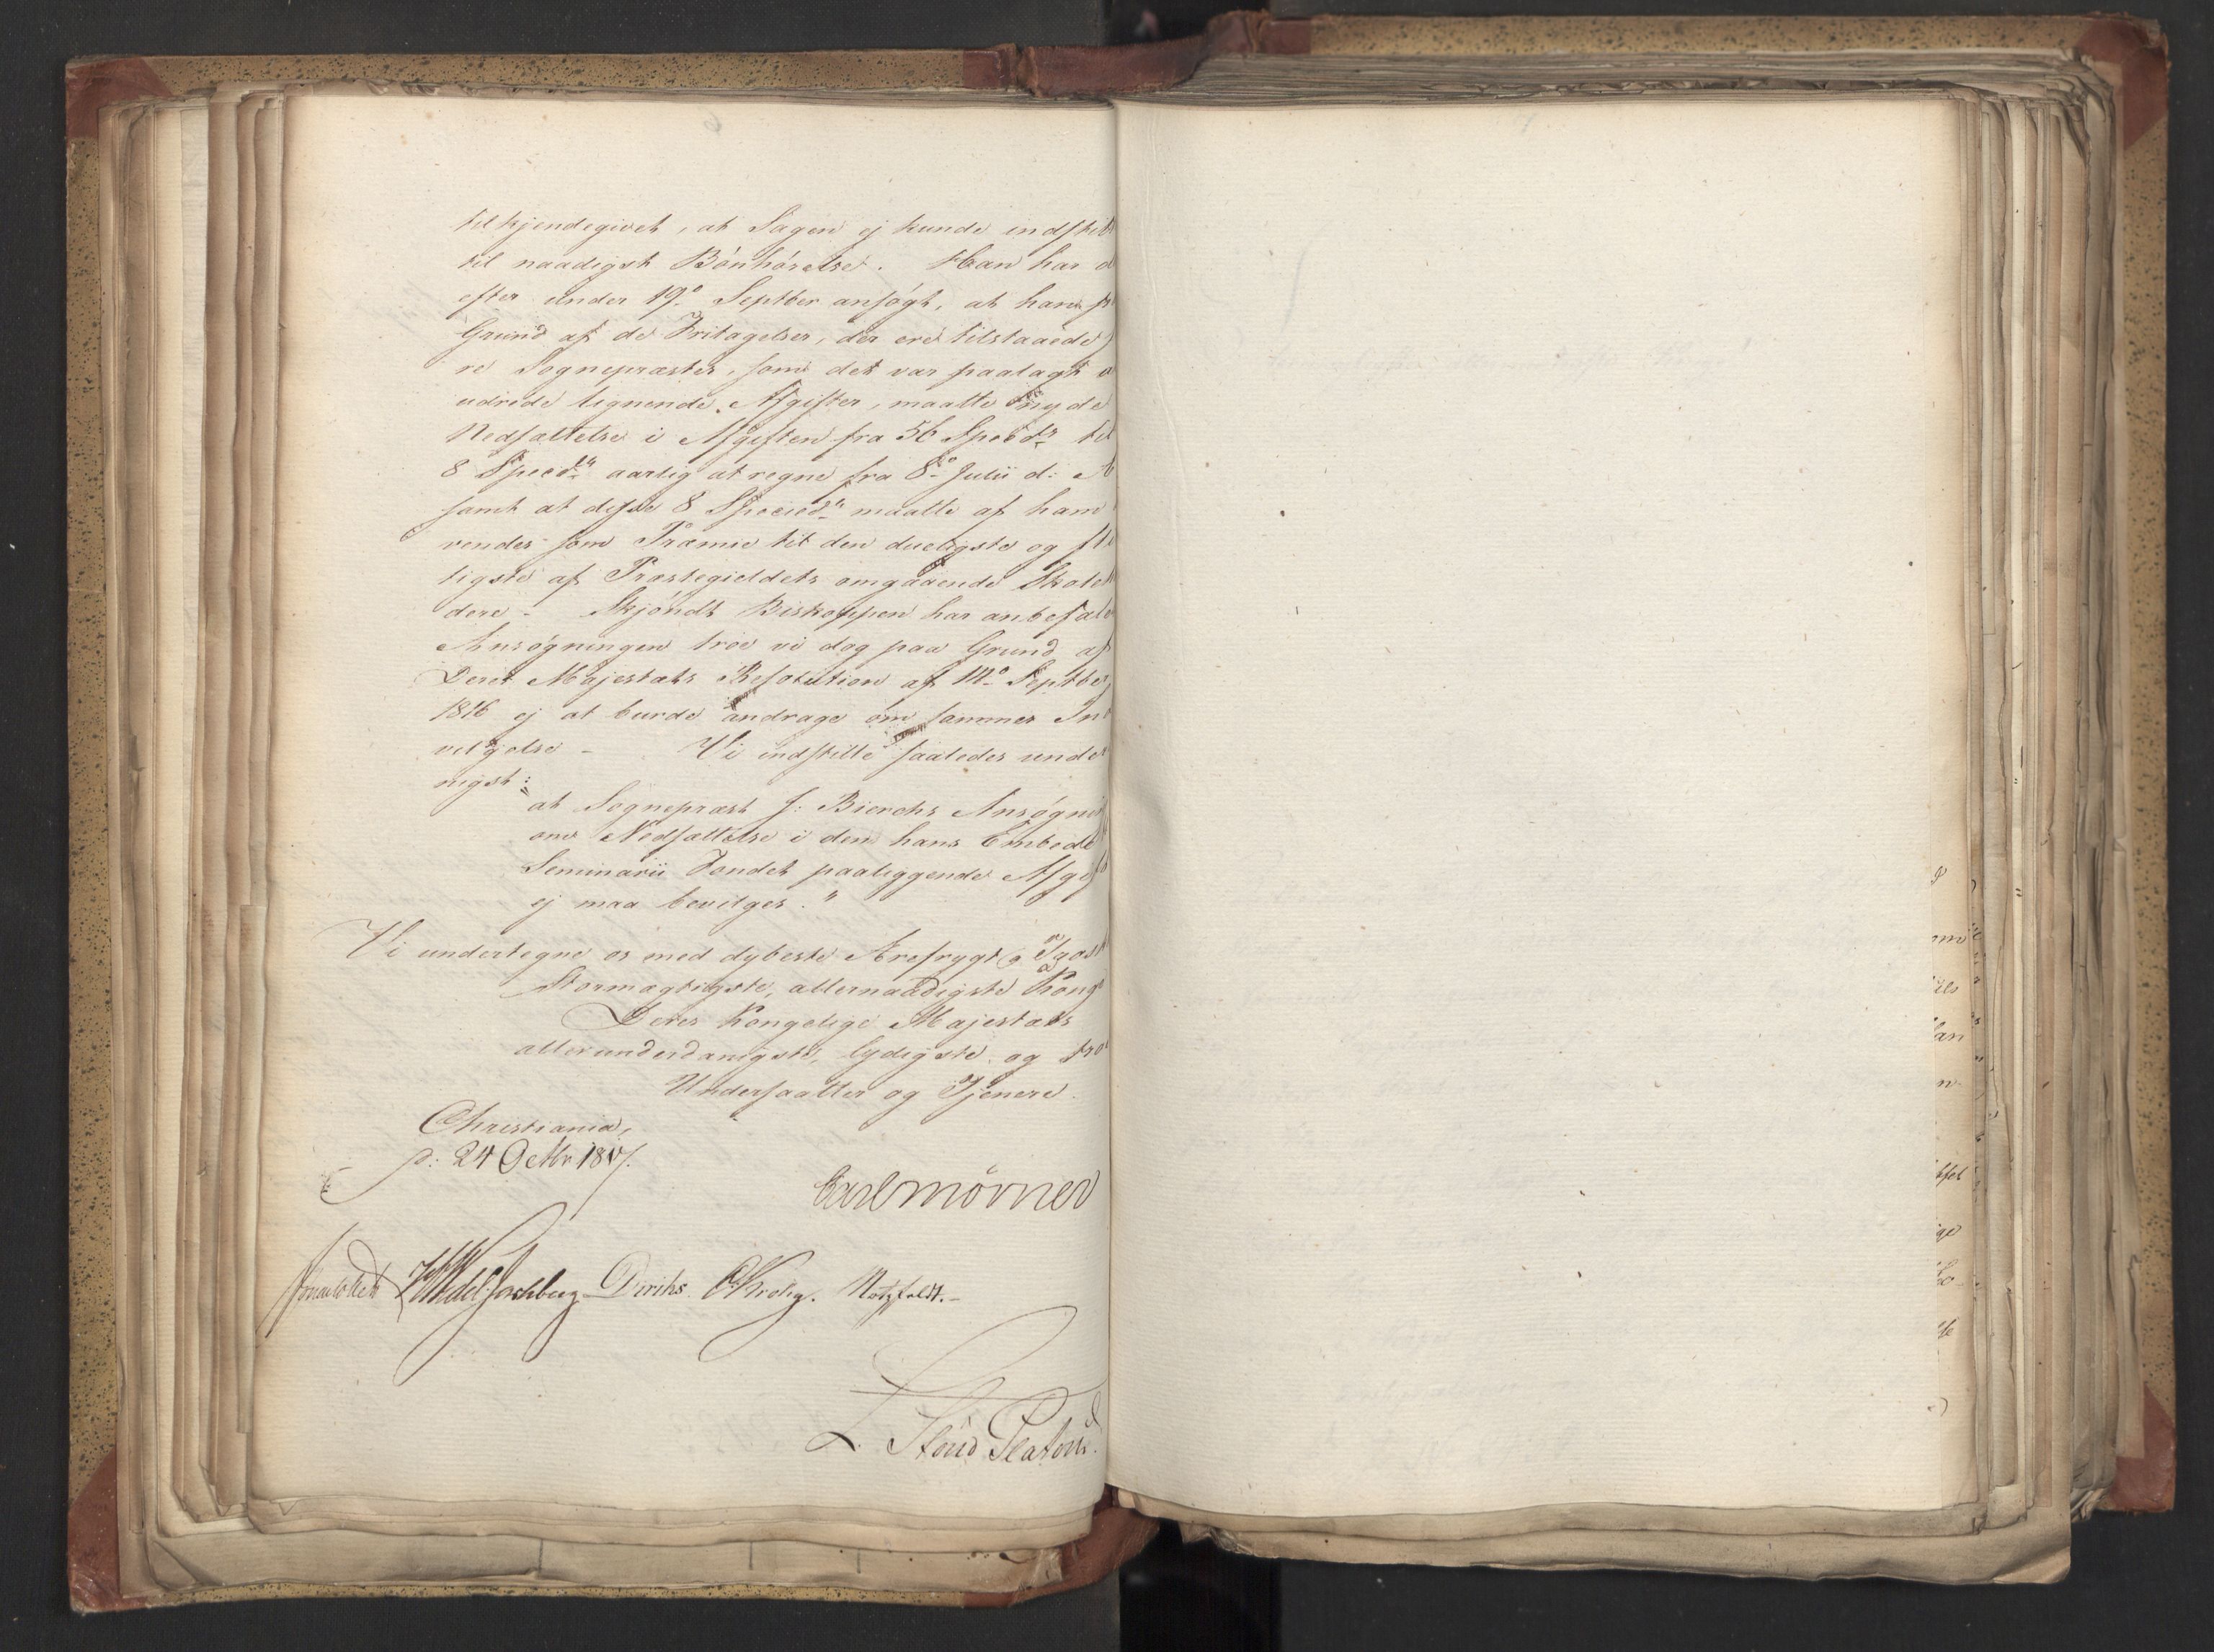 tilkjendegivet, at Sagen ej kunde indstil
til naadigst Bönhörelse. Han har d
efter under 19de Septber ansögt, at han p
Grund af de Fritagelser, der ere tilstaaede
re Sogneprester, som det var paalagt a
udrede lignende Afgifter, maatte nyde
Nedsættelse i Afgiften fra 56 Specdr til
8 Specdr aarlig at regne fra 8de Julii d: A
samt at disse 8 Speciedr maatte af ham
vendes som Præmie til den dueligste og fl
tigste af Præstegieldets omgaaende Skole
dere - Skjöndt Biskoppen har anbefal
Ansögningen troe vi dog paa Grund af
Deres Majestæts Resolution af 14de Septber
1816 ej at burde andrage om sammes Ind
vilgelse - Vi indstille saaledes under
nigst:
at Sogneprest J: Bierchs Ansögni
om Nedsættelse i den hans Embede
Seminarii Fondet paaliggende Afgif
ej maa bevilges."
Vi undertegne os med dybeste Ærefrygt
Stormægtigste, allernaadigste Konge
Deres Kongelige Majestæts
allerunderdanigste, lydigste og tro
Undersaatter og Tjenere.
Christiania,
d: 24 Octbr 1817.
Carl Mörner
Sommerfeldt Wedel Jarlsberg Diriks. CKrohg. Motzfeldt.-
L. Stoud Platou